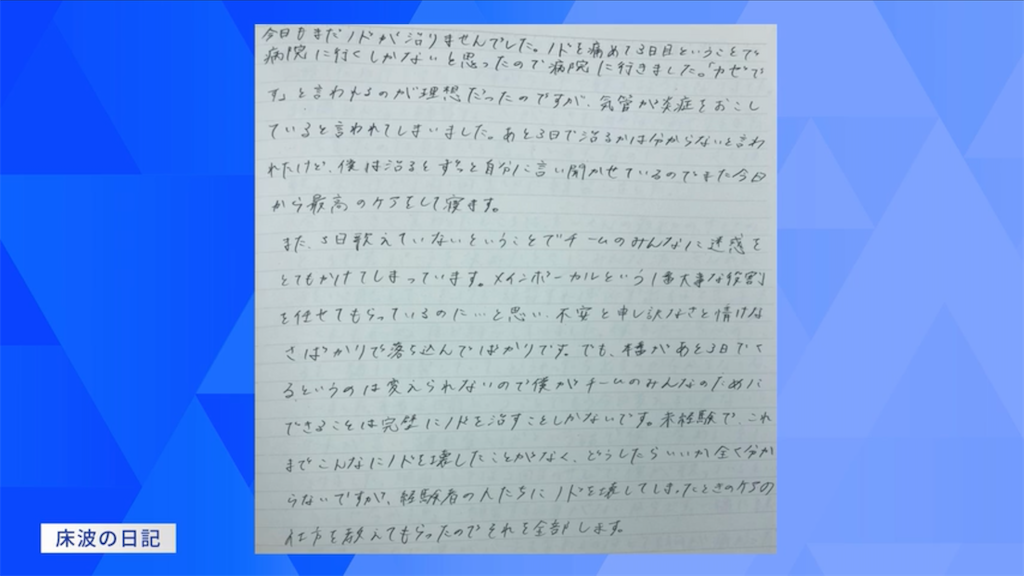 今日もまだノドが治りませんでした。ノドを痛めて3日目ということで
病院に行くしかないと思ったので病院に行きました。「カゼで
す」と言われるのが理想だったのですが、気管が炎症をおこし
ていると言われてしまいました。あと3日で治るかは分からないと言わ
れたけど、僕は治るとずっと自分に言い聞かせているのでまた今日
から最高のケアをして寝ます。
また、3日歌えていないということでチームのみんなに迷惑を
とてもかけてしまっています。メインボーカルという1番大事な役割
を任せてもらっているのに…と思い、不安と申し訳なさと情けな
さばかりで落ち込んでばかりです。でも、本番があと3日でく
るというのは変えられないので僕がチームのみんなのために
できることは完璧にノドを治すことしかないです。未経験で、これ
までこんなにノドを壊したことがなく、どうしたらいいか全く分か
らないですが、経験者の人たちにノドを壊してしまったときのケアの
仕方を教えてもらったのでそれを全部します。
床波の日記